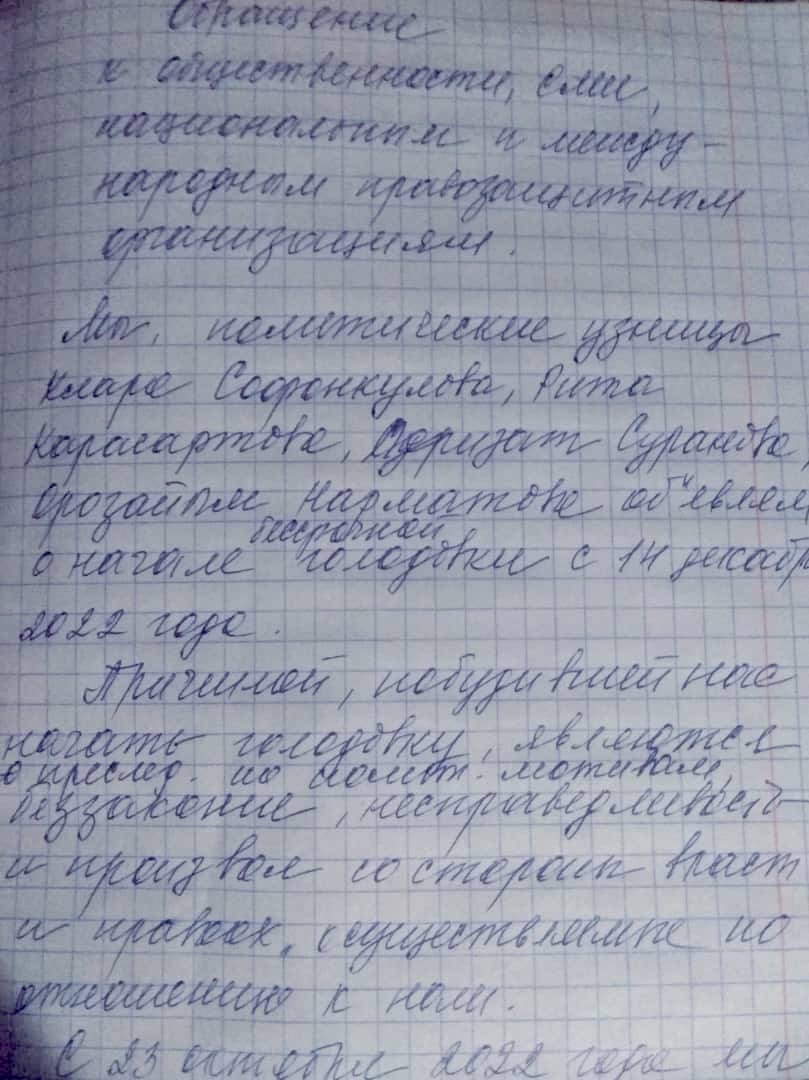 Обращение
к общественности, сми,
национальным и между-
народным правозащитным
организациям.
Мы, политические узницы
Клара Сооронкулова, Рита
Карасартова, Перизат Суранова,
Орозайым Нарматова объявляем
бессрочной
о начале голодовки с 14 декабр
2022 года.
Причиной, побудившей нас
начать голодовку, являются
преслед. по полит. мотивам,
беззаконие, несправедливость
и произвол со стороны власт
и правоох. осуществляемые по
отношению к нам.
С 23 октября 2022 года мы